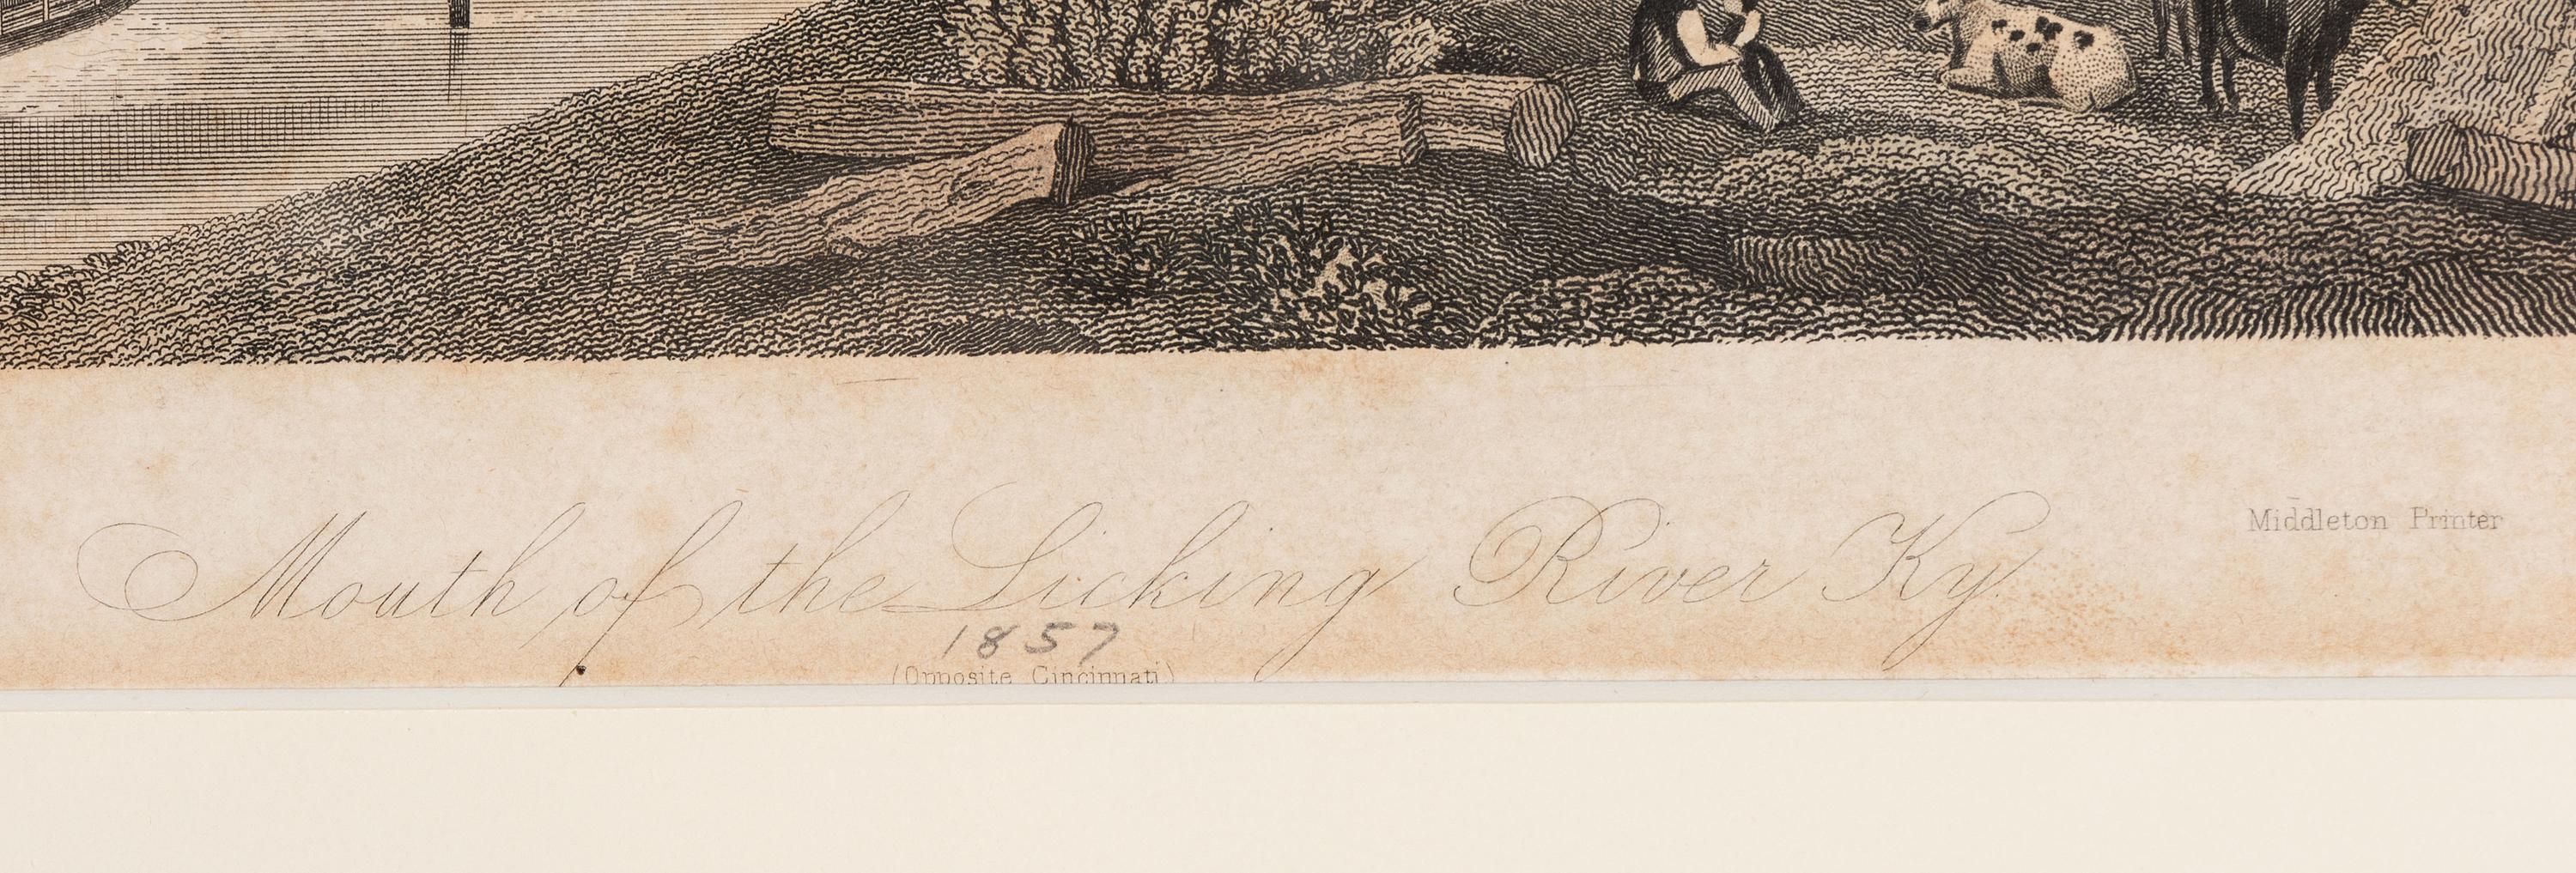 Middleton Printer
Mouth of the Licking River Ky.
1857
(Opposite Cincinnati)